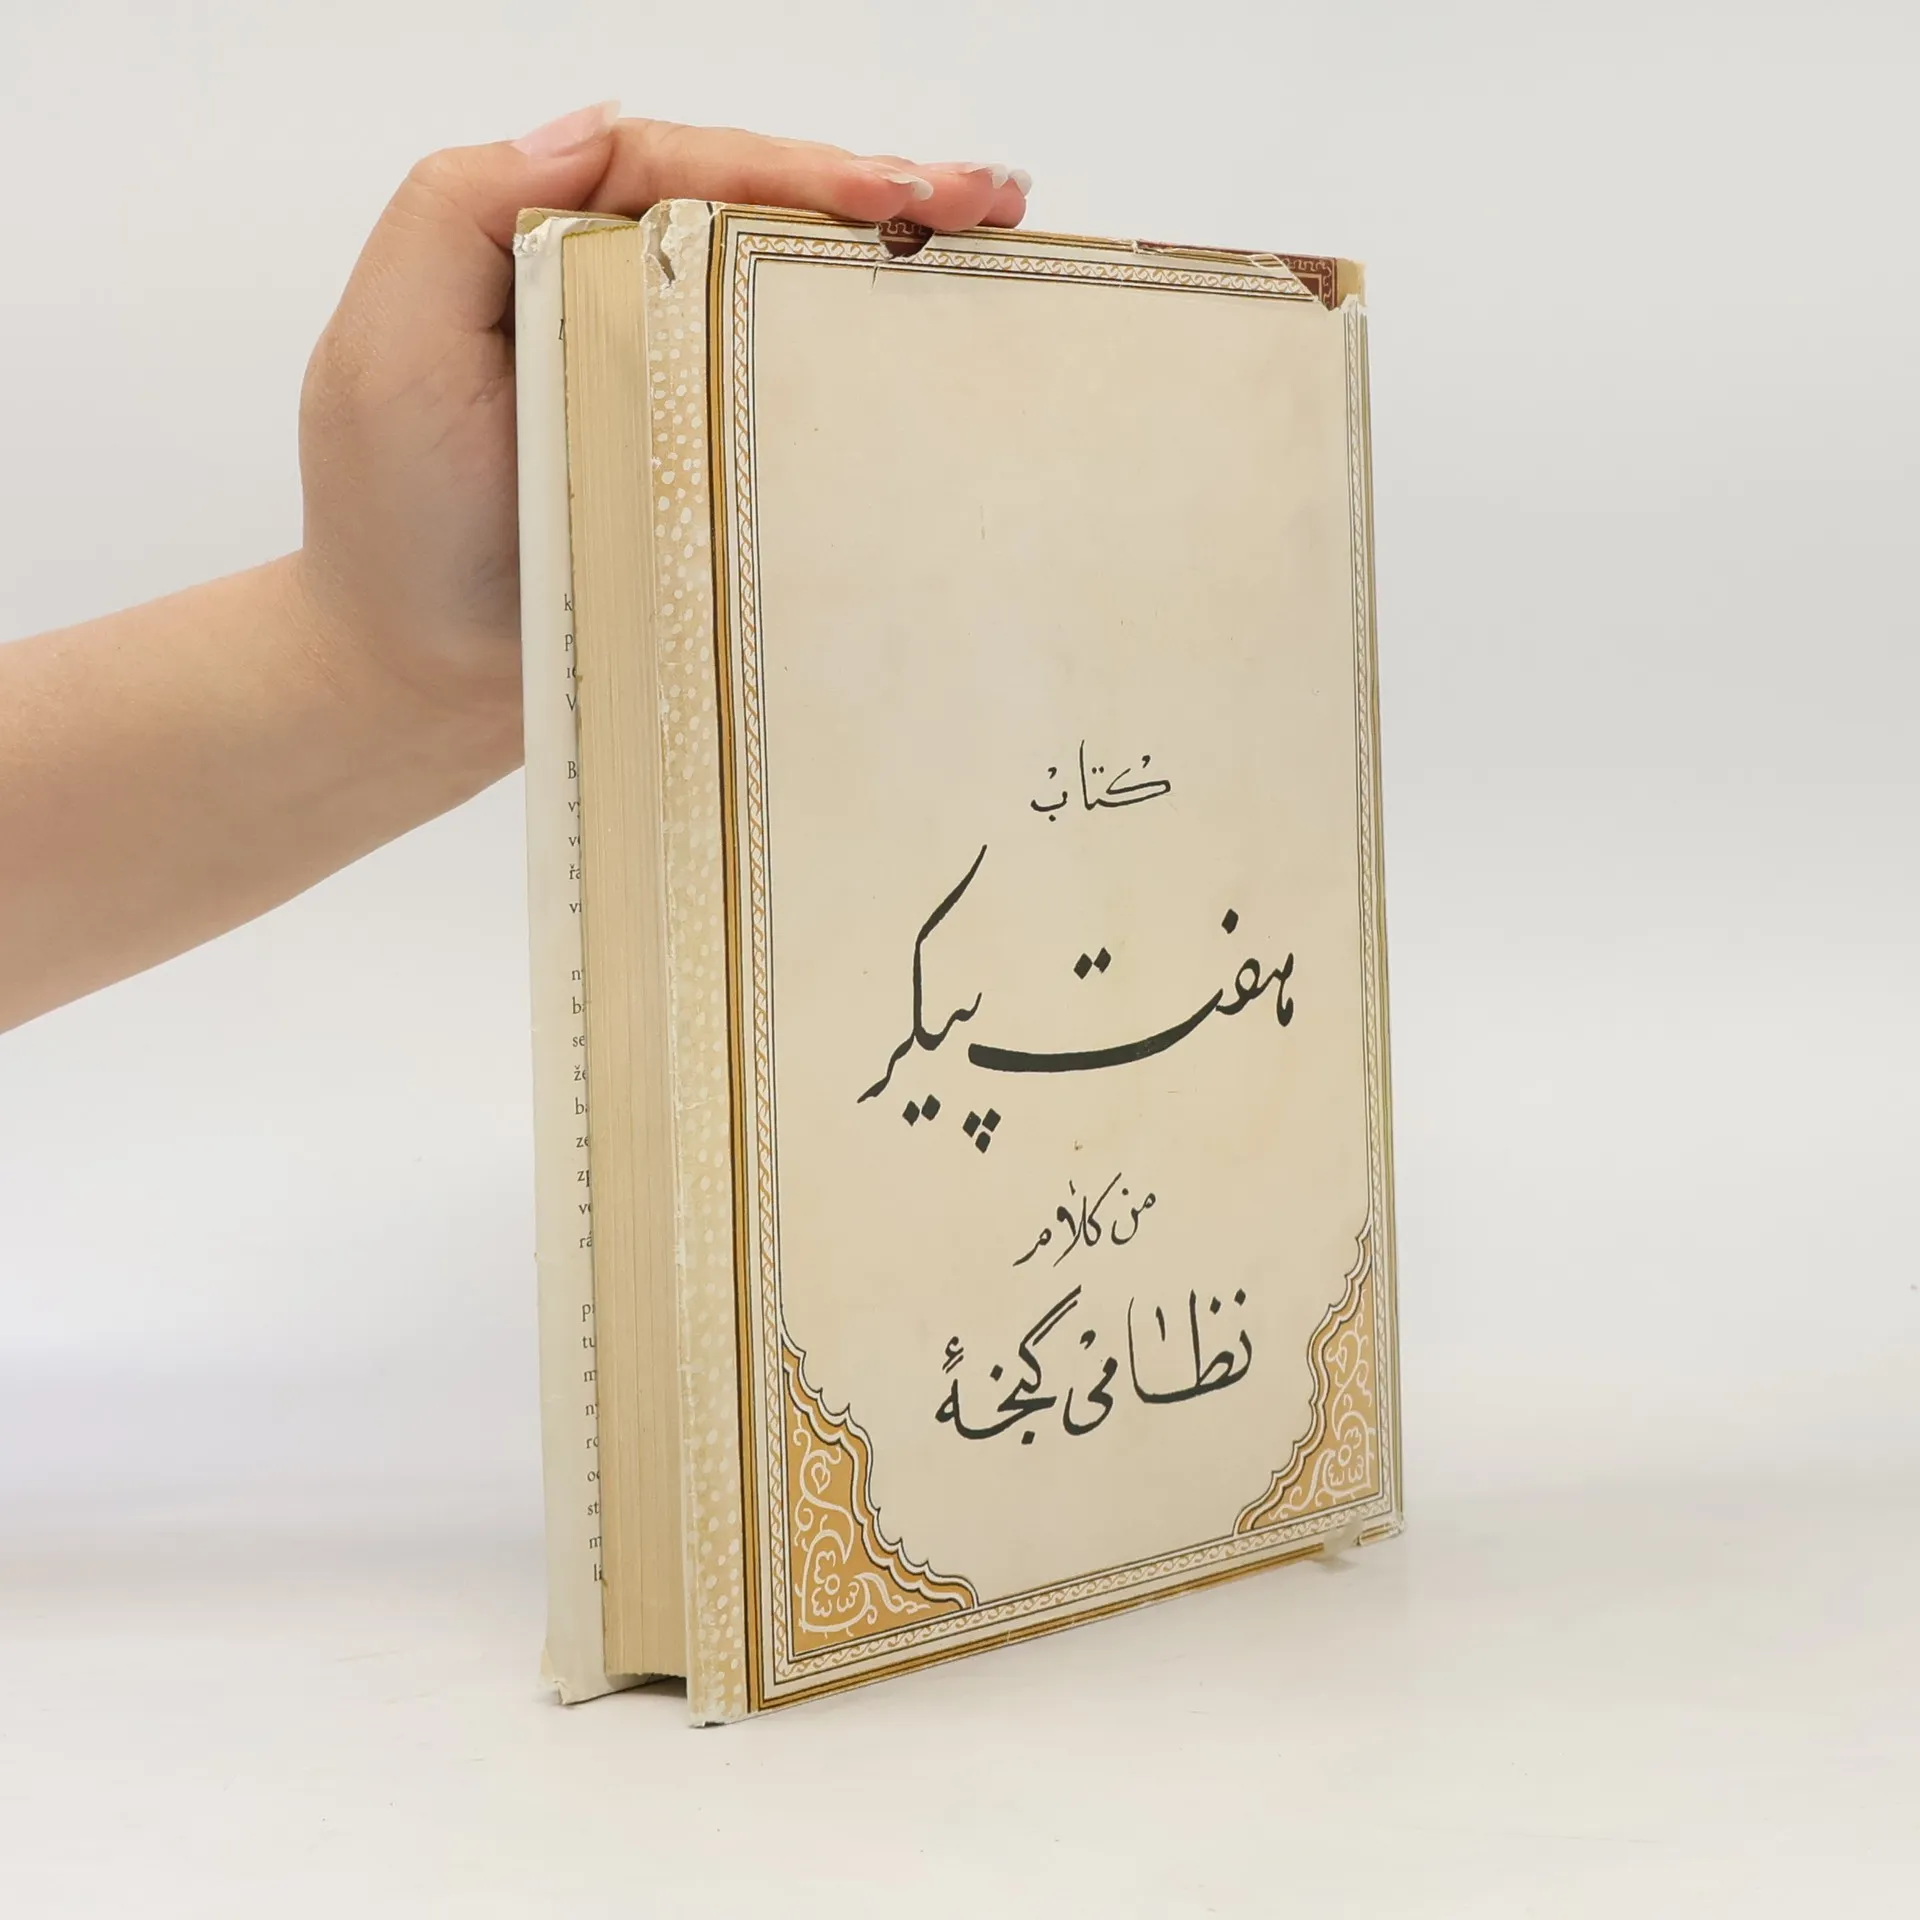 کتاب
هفت پیکر
من کلام
نظامی گنجهٔ